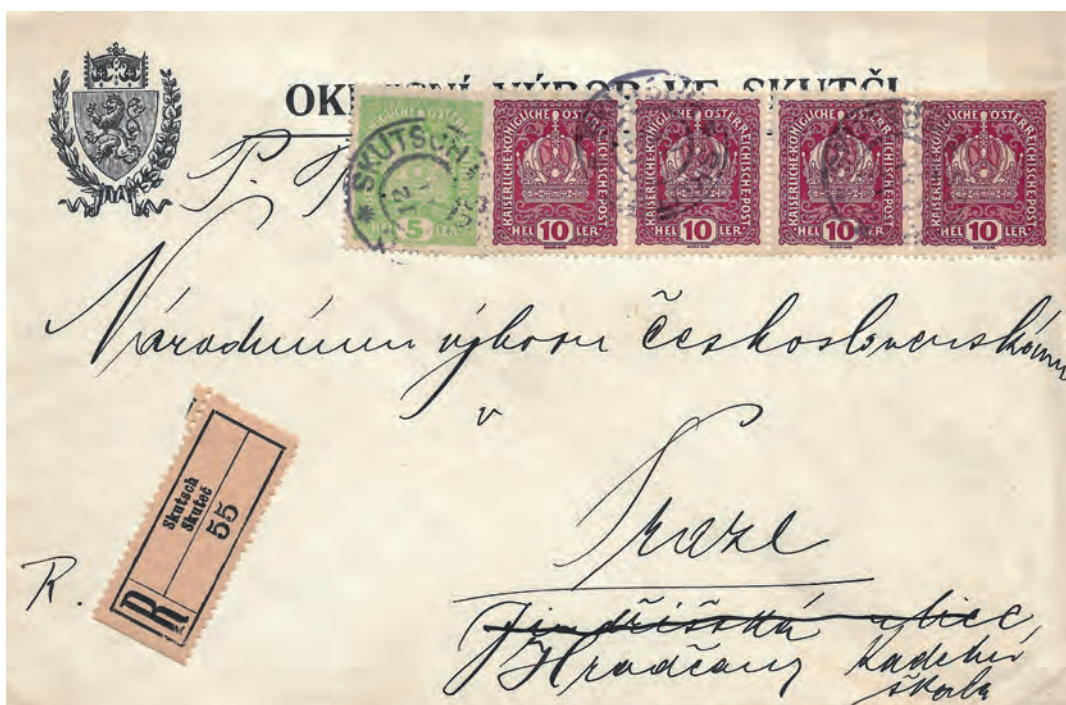 OKRESNÍ VÝBOR VE SKUTČI
P. T.
KAISERLICHE KÖNIGLICHE ÖSTERREICHISCHE POST
5
HELLER
KAISERLICHE KÖNIGLICHE ÖSTERREICHISCHE POST
HEL 10 LER
KAISERLICHE KÖNIGLICHE ÖSTERREICHISCHE POST
HEL 10 LER
KAISERLICHE KÖNIGLICHE ÖSTERREICHISCHE POST
HEL 10 LER
KAISERLICHE KÖNIGLICHE ÖSTERREICHISCHE POST
HEL 10 LER
SKUTSCH
Národnímu výboru československému
v
Praze
Jindřišská ulice
Hradčany Kadetní
škola
R.
R
Skutsch
Skuteč
55